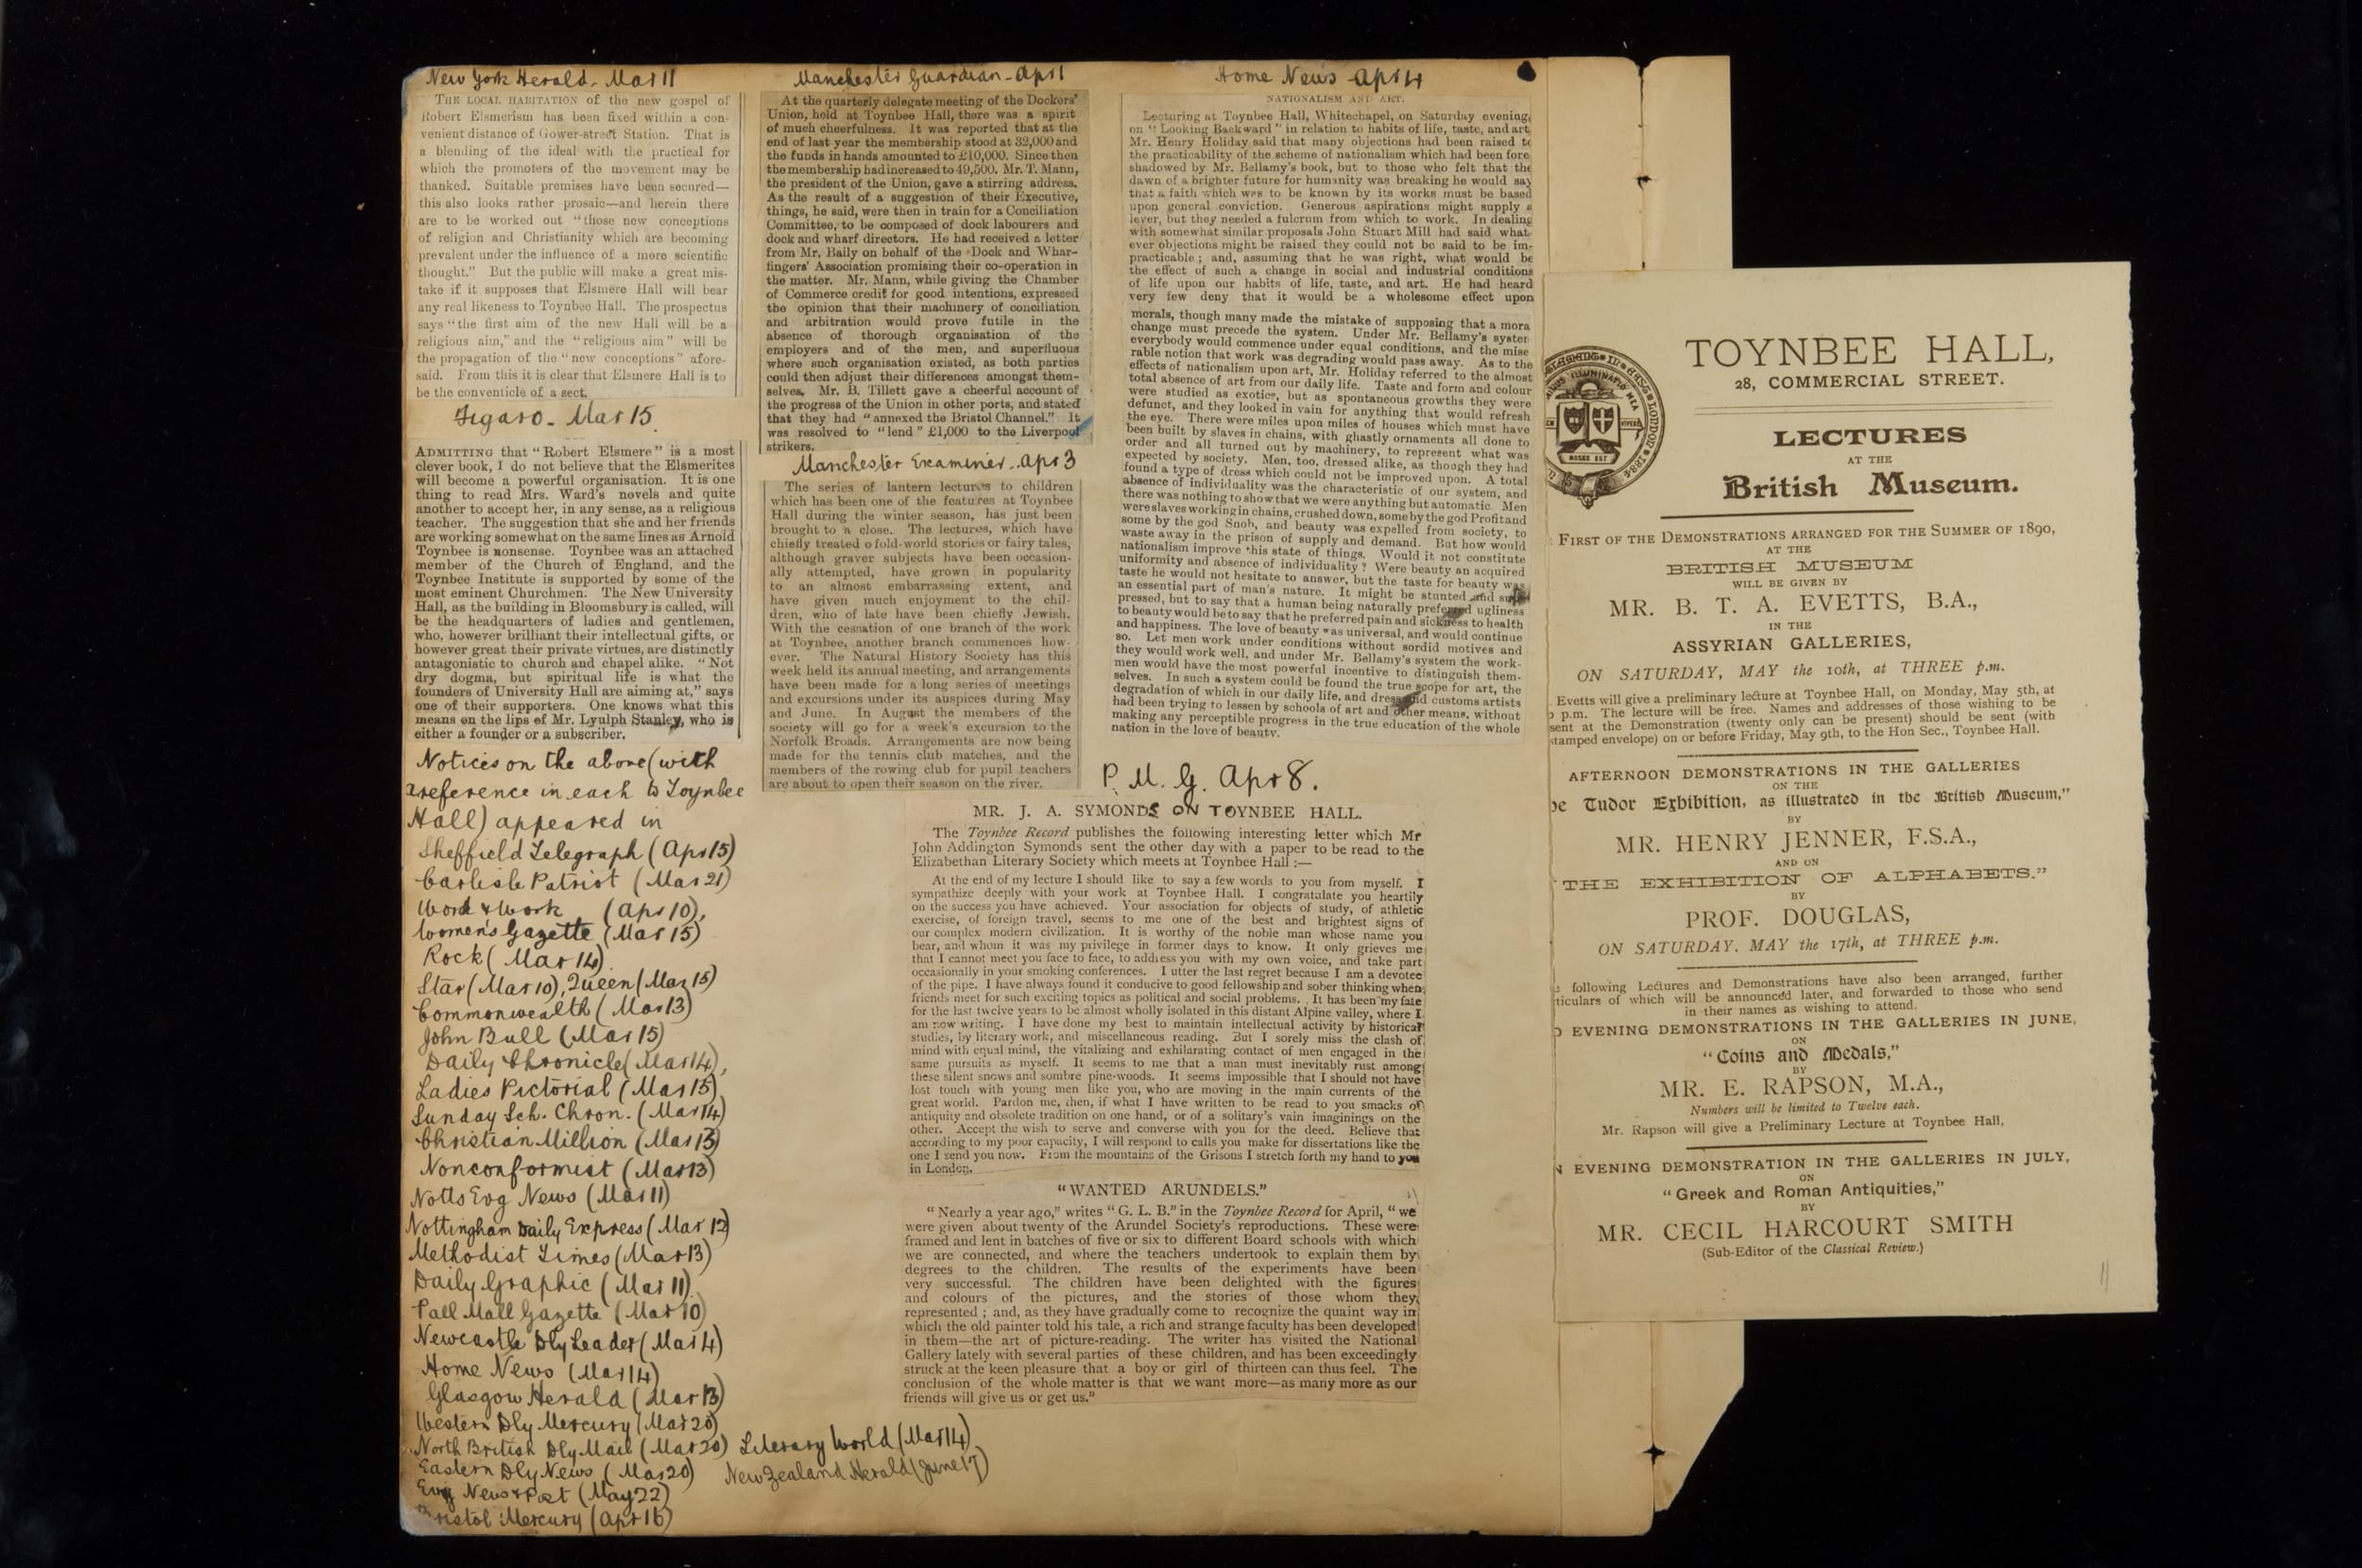 New York Herald - Mar 11
THE LOCAL HABITATION of the new gospel of
Robert Elsmerism has been fixed within a con-
venient distance of Gower-street Station. That is
a blending of the ideal with the practical for
which the promoters of the movement may be
thanked. Suitable premises have been secured—
this also looks rather prosaic—and herein there
are to be worked out "those new conceptions
of religion and Christianity which are becoming
prevalent under the influence of a more scientific
thought." But the public will make a great mis-
take if it supposes that Elsmere Hall will bear
any real likeness to Toynbee Hall. The prospectus
says "the first aim of the new Hall will be a
religious aim," and the "religious aim" will be
the propagation of the "new conceptions" afore-
said. From this it is clear that Elsmere Hall is to
be the conventicle of a sect.
Figaro - Mar 15.
ADMITTING that "Robert Elsmere" is a most
clever book, I do not believe that the Elsmerites
will become a powerful organisation. It is one
thing to read Mrs. Ward's novels and quite
another to accept her, in any sense, as a religious
teacher. The suggestion that she and her friends
are working somewhat on the same lines as Arnold
Toynbee is nonsense. Toynbee was an attached
member of the Church of England, and the
Toynbee Institute is supported by some of the
most eminent Churchmen. The New University
Hall, as the building in Bloomsbury is called, will
be the headquarters of ladies and gentlemen,
who, however brilliant their intellectual gifts, or
however great their private virtues, are distinctly
antagonistic to church and chapel alike. "Not
dry dogma, but spiritual life is what the
founders of University Hall are aiming at," says
one of their supporters. One knows what this
means on the lips of Mr. Lyulph Stanley, who is
either a founder or a subscriber.
Notices on the above (with
a reference in each to Toynbee
Hall) appeared in
Sheffield Telegraph (Apr 15)
Carlisle Patriot (Mar 21)
Word & Work (Apr 10),
Women's Gazette (Mar 15)
Rock (Mar 14)
Star (Mar 10), Queen (Mar 15)
Commonwealth (Mar 13)
John Bull (Mar 15)
Daily Chronicle (Mar 14),
Ladies Pictorial (Mar 15)
Sunday Sch. Chron. (Mar 14)
Christian Million (Mar 13)
Nonconformist (Mar 13)
Notts Evg News (Mar 11)
Nottingham Daily Express (Mar 12)
Methodist Times (Mar 13)
Daily Graphic (Mar 11)
Pall Mall Gazette (Mar 10)
Newcastle Dly Leader (Mar 14)
Home News (Mar 14)
Glasgow Herald (Mar 13)
Western Dly Mercury (Mar 20)
North British Dly Mail (Mar 20) Literary World (Mar 14)
Eastern Dly News (Mar 20) New Zealand Herald (June 17)
Evg News & Post (May 22)
Bristol Mercury (Apr 16)
Manchester Guardian - Apr 1
At the quarterly delegate meeting of the Dockers'
Union, held at Toynbee Hall, there was a spirit
of much cheerfulness. It was reported that at the
end of last year the membership stood at 32,000 and
the funds in hands amounted to £10,000. Since then
the membership had increased to 49,500. Mr. T. Mann,
the president of the Union, gave a stirring address.
As the result of a suggestion of their Executive,
things, he said, were then in train for a Conciliation
Committee, to be composed of dock labourers and
dock and wharf directors. He had received a letter
from Mr. Baily on behalf of the Dock and Whar-
fingers' Association promising their co-operation in
the matter. Mr. Mann, while giving the Chamber
of Commerce credit for good intentions, expressed
the opinion that their machinery of conciliation
and arbitration would prove futile in the
absence of thorough organisation of the
employers and of the men, and superfluous
where such organisation existed, as both parties
could then adjust their differences amongst them-
selves. Mr. B. Tillett gave a cheerful account of
the progress of the Union in other ports, and stated
that they had "annexed the Bristol Channel." It
was resolved to "lend" £1,000 to the Liverpool
strikers.
Manchester Examiner - Apr 3
The series of lantern lectures to children
which has been one of the features at Toynbee
Hall during the winter season, has just been
brought to a close. The lectures, which have
chiefly treated o fold-world stories or fairy tales,
although graver subjects have been occasion-
ally attempted, have grown in popularity
to an almost embarrassing extent, and
have given much enjoyment to the chil-
dren, who of late have been chiefly Jewish.
With the cessation of one branch of the work
at Toynbee, another branch commences how-
ever. The Natural History Society has this
week held its annual meeting, and arrangements
have been made for a long series of meetings
and excursions under its auspices during May
and June. In August the members of the
society will go for a week's excursion to the
Norfolk Broads. Arrangements are now being
made for the tennis club matches, and the
members of the rowing club for pupil teachers
are about to open their season on the river.
Home News - Apr 4
NATIONALISM AND ART.
Lecturing at Toynbee Hall, Whitechapel, on Saturday evening,
on "Looking Backward" in relation to habits of life, taste, and art
Mr. Henry Holiday said that many objections had been raised to
the practicability of the scheme of nationalism which had been fore
shadowed by Mr. Bellamy's book, but to those who felt that the
dawn of a brighter future for humanity was breaking he would say
that a faith which was to be known by its works must be based
upon general conviction. Generous aspirations might supply a
lever, but they needed a fulcrum from which to work. In dealing
with somewhat similar proposals John Stuart Mill had said what-
ever objections might be raised they could not be said to be im-
practicable; and, assuming that he was right, what would be
the effect of such a change in social and industrial conditions
of life upon our habits of life, taste, and art. He had heard
very few deny that it would be a wholesome effect upon
morals, though many made the mistake of supposing that a mora
change must precede the system. Under Mr. Bellamy's syster
everybody would commence under equal conditions, and the mise
rable notion that work was degrading would pass away. As to the
effects of nationalism upon art, Mr. Holiday referred to the almost
total absence of art from our daily life. Taste and form and colour
were studied as exotics, but as spontaneous growths they were
defunct, and they looked in vain for anything that would refresh
the eye. There were miles upon miles of houses which must have
been built by slaves in chains, with ghastly ornaments all done to
order and all turned out by machinery, to represent what was
expected by society. Men, too, dressed alike, as though they had
found a type of dress which could not be improved upon. A total
absence of individuality was the characteristic of our system, and
there was nothing to show that we were anything but automatic. Men
were slaves working in chains, crushed down, some by the god Profit and
some by the god Snob, and beauty was expelled from society, to
waste away in the prison of supply and demand. But how would
nationalism improve this state of things. Would it not constitute
uniformity and absence of individuality? Were beauty an acquired
taste he would not hesitate to answer, but the taste for beauty was
an essential part of man's nature. It might be stunted and sup-
pressed, but to say that a human being naturally preferred ugliness
to beauty would be to say that he preferred pain and sickness to health
and happiness. The love of beauty was universal, and would continue
so. Let men work under conditions without sordid motives and
they would work well, and under Mr. Bellamy's system the work-
men would have the most powerful incentive to distinguish them-
selves. In such a system could be found the true scope for art, the
degradation of which in our daily life, and dress and customs artists
had been trying to lessen by schools of art and other means, without
making any perceptible progress in the true education of the whole
nation in the love of beauty.
P. M. G. Apr 8.
MR. J. A. SYMONDS ON TOYNBEE HALL.
The Toynbee Record publishes the following interesting letter which Mr
John Addington Symonds sent the other day with a paper to be read to the
Elizabethan Literary Society which meets at Toynbee Hall:—
At the end of my lecture I should like to say a few words to you from myself. I
sympathize deeply with your work at Toynbee Hall. I congratulate you heartily
on the success you have achieved. Your association for objects of study, of athletic
exercise, of foreign travel, seems to me one of the best and brightest signs of
our complex modern civilization. It is worthy of the noble man whose name you
bear, and whom it was my privilege in former days to know. It only grieves me
that I cannot meet you face to face, to address you with my own voice, and take part
occasionally in your smoking conferences. I utter the last regret because I am a devotee
of the pipe. I have always found it conducive to good fellowship and sober thinking when
friends meet for such exciting topics as political and social problems. It has been my fate
for the last twelve years to be almost wholly isolated in this distant Alpine valley, where I
am now writing. I have done my best to maintain intellectual activity by historical
studies, by literary work, and miscellaneous reading. But I sorely miss the clash of
mind with equal mind, the vitalizing and exhilarating contact of men engaged in the
same pursuits as myself. It seems to me that a man must inevitably rust among
these silent snows and sombre pine-woods. It seems impossible that I should not have
lost touch with young men like you, who are moving in the main currents of the
great world. Pardon me, then, if what I have written to be read to you smacks of
antiquity and obsolete tradition on one hand, or of a solitary's vain imaginings on the
other. Accept the wish to serve and converse with you for the deed. Believe that
according to my poor capacity, I will respond to calls you make for dissertations like the
one I send you now. From the mountains of the Grisons I stretch forth my hand to you
in London.
"WANTED ARUNDELS."
"Nearly a year ago," writes "G. L. B." in the Toynbee Record for April, "we
were given about twenty of the Arundel Society's reproductions. These were
framed and lent in batches of five or six to different Board schools with which
we are connected, and where the teachers undertook to explain them by
degrees to the children. The results of the experiments have been
very successful. The children have been delighted with the figures
and colours of the pictures, and the stories of those whom they
represented; and, as they have gradually come to recognize the quaint way in
which the old painter told his tale, a rich and strange faculty has been developed
in them—the art of picture-reading. The writer has visited the National
Gallery lately with several parties of these children, and has been exceedingly
struck at the keen pleasure that a boy or girl of thirteen can thus feel. The
conclusion of the whole matter is that we want more—as many more as our
friends will give us or get us."
TOYNBEE HALL,
28, COMMERCIAL STREET.
LECTURES
AT THE
British Museum.
FIRST OF THE DEMONSTRATIONS ARRANGED FOR THE SUMMER OF 1890,
AT THE
BRITISH MUSEUM
WILL BE GIVEN BY
MR. B. T. A. EVETTS, B.A.,
IN THE
ASSYRIAN GALLERIES,
ON SATURDAY, MAY the 10th, at THREE p.m.
Evetts will give a preliminary lecture at Toynbee Hall, on Monday, May 5th, at
p.m. The lecture will be free. Names and addresses of those wishing to be
sent at the Demonstration (twenty only can be present) should be sent (with
stamped envelope) on or before Friday, May 9th, to the Hon Sec., Toynbee Hall.
AFTERNOON DEMONSTRATIONS IN THE GALLERIES
ON THE
he Tudor Exhibition, as illustrated in the British Museum,"
BY
MR. HENRY JENNER, F.S.A.,
AND ON
"THE EXHIBITION OF ALPHABETS."
BY
PROF. DOUGLAS,
ON SATURDAY, MAY the 17th, at THREE p.m.
following Lectures and Demonstrations have also been arranged, further
ticulars of which will be announced later, and forwarded to those who send
in their names as wishing to attend.
O EVENING DEMONSTRATIONS IN THE GALLERIES IN JUNE,
ON
"Coins and Medals,"
BY
MR. E. RAPSON, M.A.,
Numbers will be limited to Twelve each.
Mr. Rapson will give a Preliminary Lecture at Toynbee Hall,
N EVENING DEMONSTRATION IN THE GALLERIES IN JULY,
ON
"Greek and Roman Antiquities,"
BY
MR. CECIL HARCOURT SMITH
(Sub-Editor of the Classical Review.)